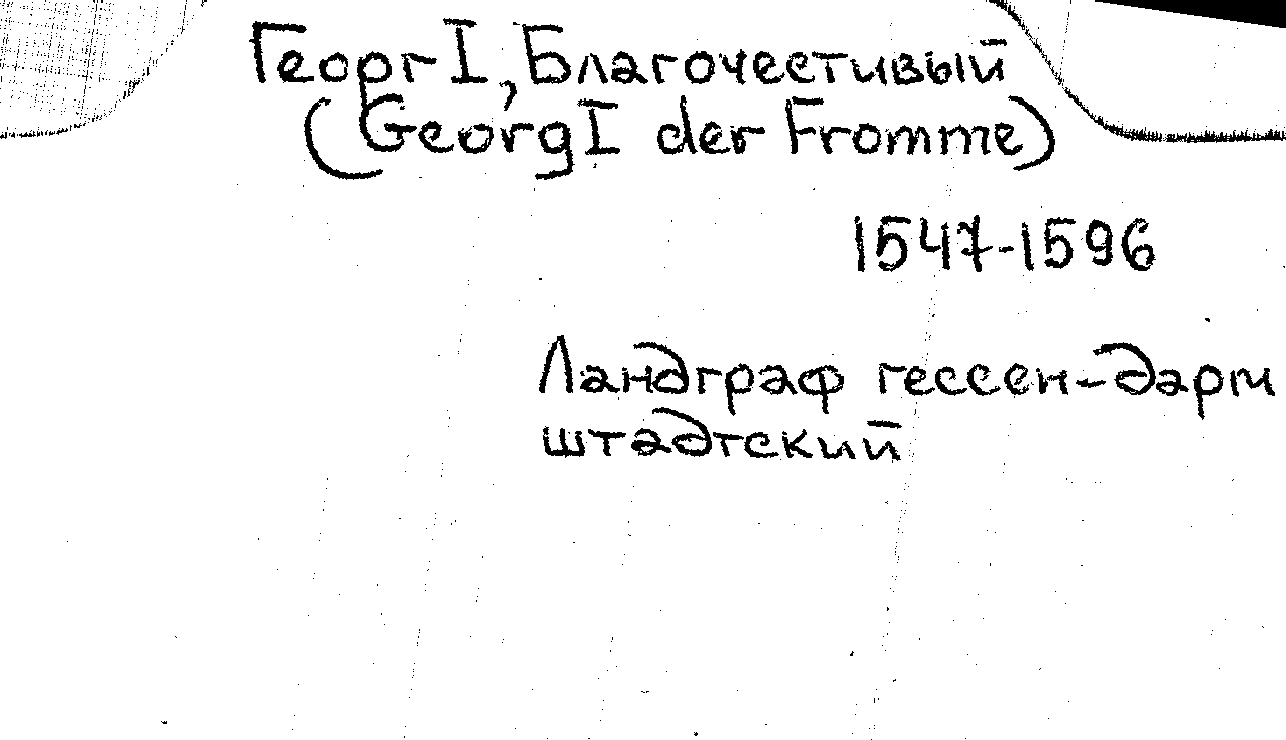 Георг I, Благочестивый
(Georg I der Fromme)
1547-1596
Ландграф гессен-дарм
штадтский